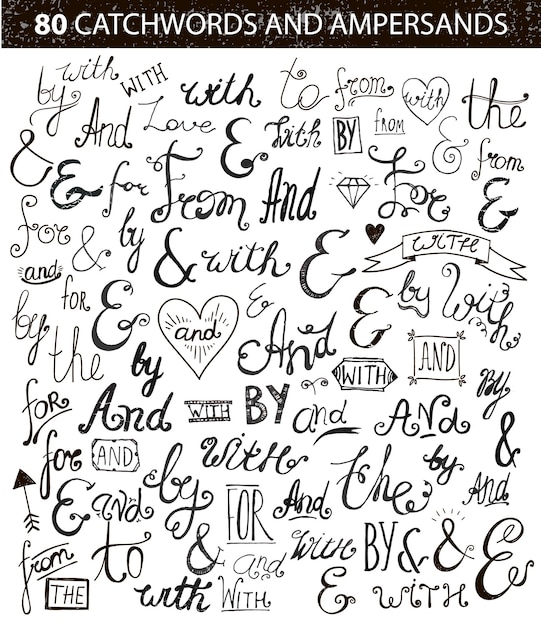 80 CATCHWORDS AND AMPERSANDS
by with WITH with to from with the
And Love & with BY FROM & from
& & for From And For &
for & by & with & WITH
and FOR & & & by with
by the and And AND
by WITH BY
for And WITH BY and AND &
for AND by with the by And
& And FOR And
from to & and with BY & & &
THE with WITH & WITH